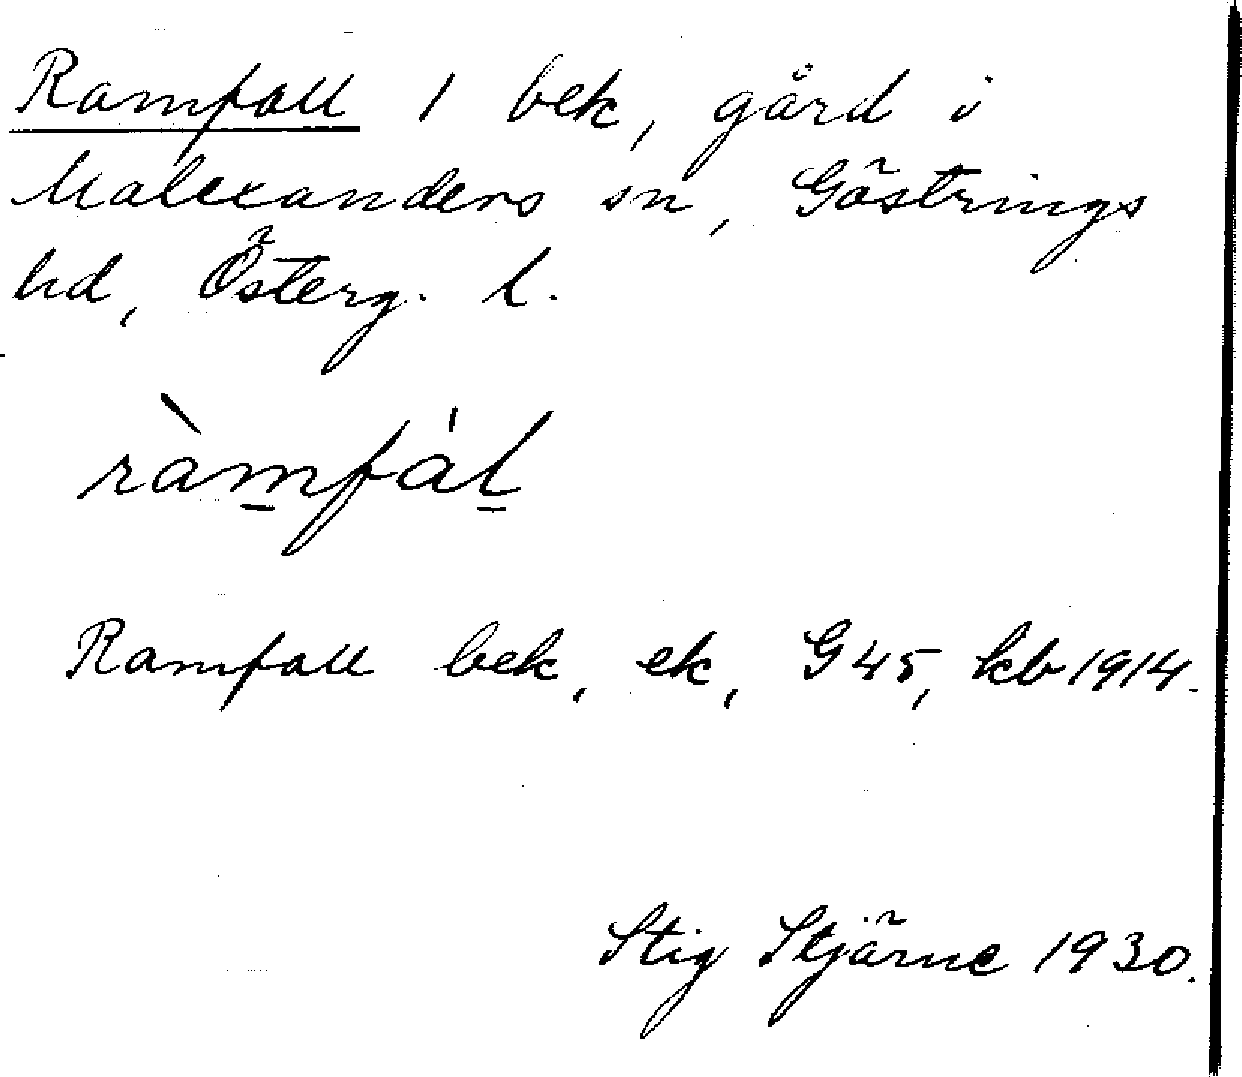 Ramfall 1 bek, gård i
Malexanders sn, Göstrings
hd, Österg. l.
ràmfàl
Ramfall bek, ek, G 45, kb 1914.
Stig Stjärne 1930.